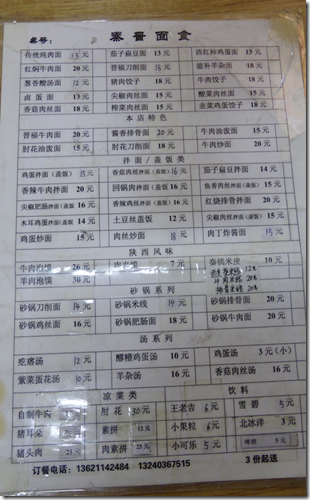 桌号: 秦晋面食
传统炖肉面 13 元 茄子扁豆面 13 元 西红柿鸡蛋面 13 元
红焖牛肉面 20 元 晋福刀削面 元 滋补羊杂面 18 元
葱香酸汤面 12 元 猪肉饺子 18 元 牛肉饺子 18 元
卤蛋面 13 元 尖椒肉丝面 15 元 酸菜肉丝面 15 元
香菇肉丝面 18 元 榨菜肉丝面 15 元 韭菜鸡蛋饺子 18 元
本店特色
晋福牛肉面 20 元 酱香排骨面 20 元 牛肉油泼面 15 元
肘花油泼面 15 元 肘花刀削面 18 元 牛肉炒面 20 元
拌面/盖饭类
鸡蛋拌面(盖饭) 15 元 香菇肉丝拌面(盖饭) 16 元 茄子扁豆拌面 14 元
香辣牛肉拌面 20 元 回锅肉拌面(盖饭) 16 元 鱼香肉丝拌面(盖饭) 15 元
尖椒肥肠拌面(盖饭) 16 元 香辣鸡丝拌面(盖饭) 16 元 红烧排骨拌面(盖饭) 20 元
木耳鸡蛋拌面(盖饭) 14 元 土豆丝盖饭 12 元 尖椒肉丝拌面(盖饭) 15 元
鸡蛋炒面 15 元 肉丝炒面 18 元 肉丁炸酱面 15 元
陕西风味
牛肉泡馍 26 元 7 元 秦镇米皮 10 元
羊肉泡馍 30 元
砂锅系列
砂锅刀削面 14 元 砂锅米线 14 元 砂锅排骨面 20 元
砂锅鸡丝面 16 元 砂锅肥肠面 18 元 砂锅牛肉面 20 元
汤系列
疙瘩汤 12 元 醪糟鸡蛋汤 10 元 鸡蛋汤 3 元(小)
紫菜蛋花汤 10 元 羊杂汤 16 元 香菇鸡蛋汤 10 元
凉菜类 饮料
自制牛肉 肘花 30 元 王老吉 6 元 雪碧 5 元
猪耳朵 素拼 12 元 小果粒 6 元 北冰洋 3 元
猪头肉 25 元 肉素拼 25 元 小可乐 5 元 啤酒 5 元
订餐电话:13621142484 13240367515 3份起送